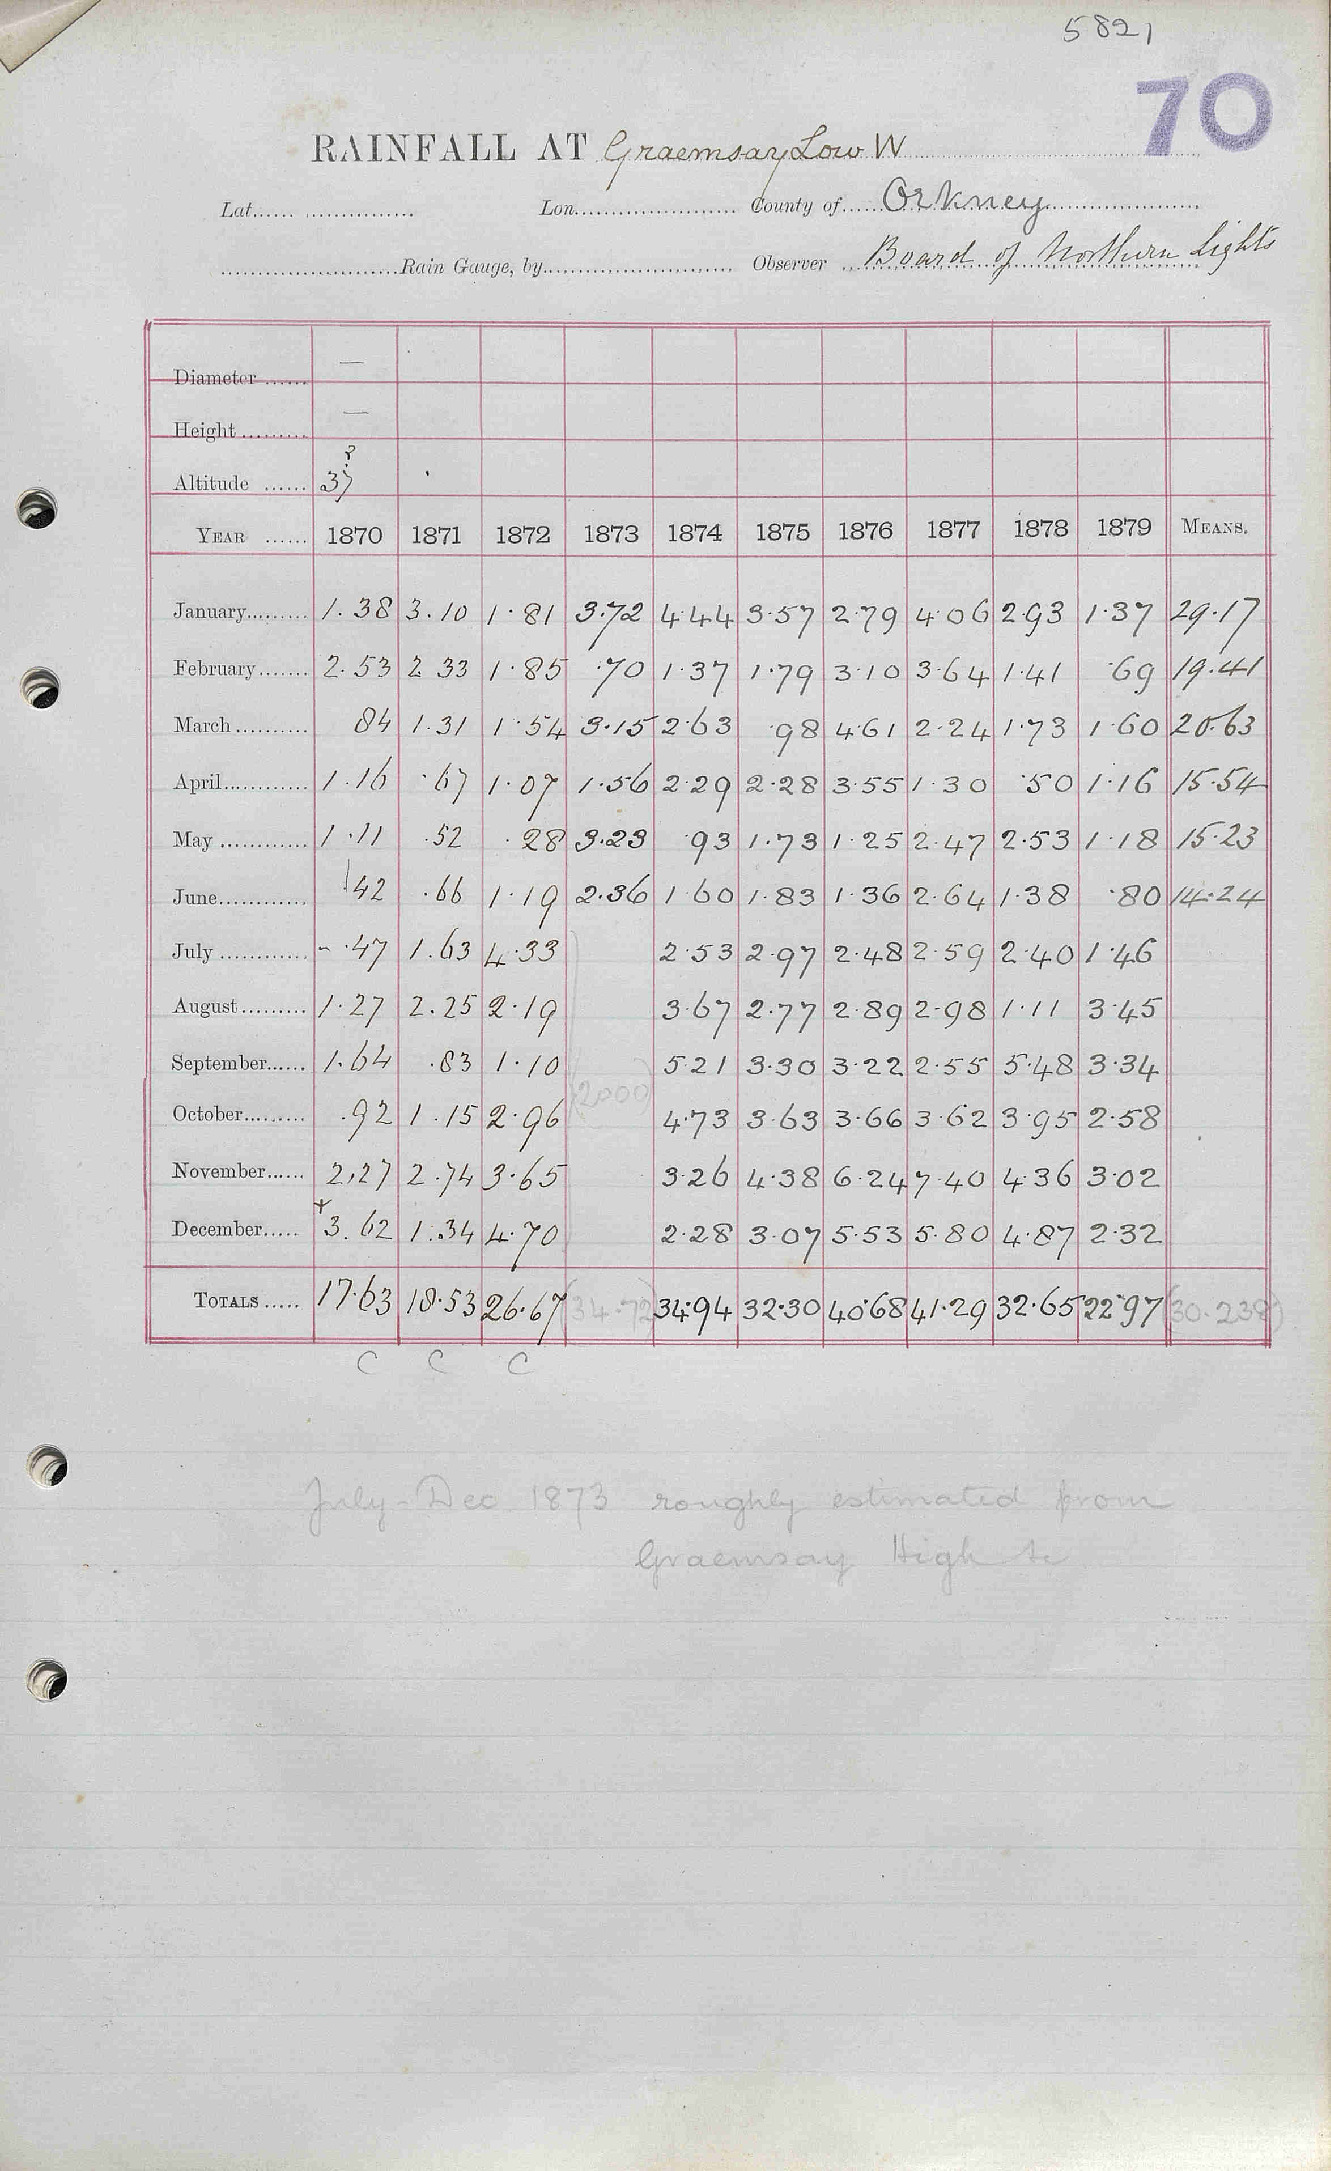 5821
70
RAINFALL AT Graemsay Low W
Lat. Lon. County of Orkney
Rain Gauge, by Observer Board of Northern Lights
Diameter —
Height —
?
Altitude 37
YEAR 1870 1871 1872 1873 1874 1875 1876 1877 1878 1879 MEANS.
January 1.38 3.10 1.81 3.72 4.44 3.57 2.79 4.06 2.93 1.37 29.17
February 2.53 2.33 1.85 .70 1.37 1.79 3.10 3.64 1.41 .69 19.41
March 84 1.31 1.54 3.15 2.63 .98 4.61 2.24 1.73 1.60 20.63
April 1.16 .67 1.07 1.56 2.29 2.28 3.55 1.30 .50 1.16 15.54
May 1.11 .52 .28 3.23 .93 1.73 1.25 2.47 2.53 1.18 15.23
June .42 .66 1.19 2.36 1.60 1.83 1.36 2.64 1.38 .80 14.24
July .47 1.63 4.33 2.53 2.97 2.48 2.59 2.40 1.46
August 1.27 2.25 2.19 3.67 2.77 2.89 2.98 1.11 3.45
September 1.64 .83 1.10 5.21 3.30 3.22 2.55 5.48 3.34
October .92 1.15 2.96 (2000) 4.73 3.63 3.66 3.62 3.95 2.58
November 2.27 2.74 3.65 3.26 4.38 6.24 7.40 4.36 3.02
December 3.62 1.34 4.70 2.28 3.07 5.53 5.80 4.87 2.32
TOTALS 17.63 18.53 26.67 (34.72) 34.94 32.30 40.68 41.29 32.65 22.97 (30.238)
C C C
July - Dec 1873 roughly estimated from
Graemsay High